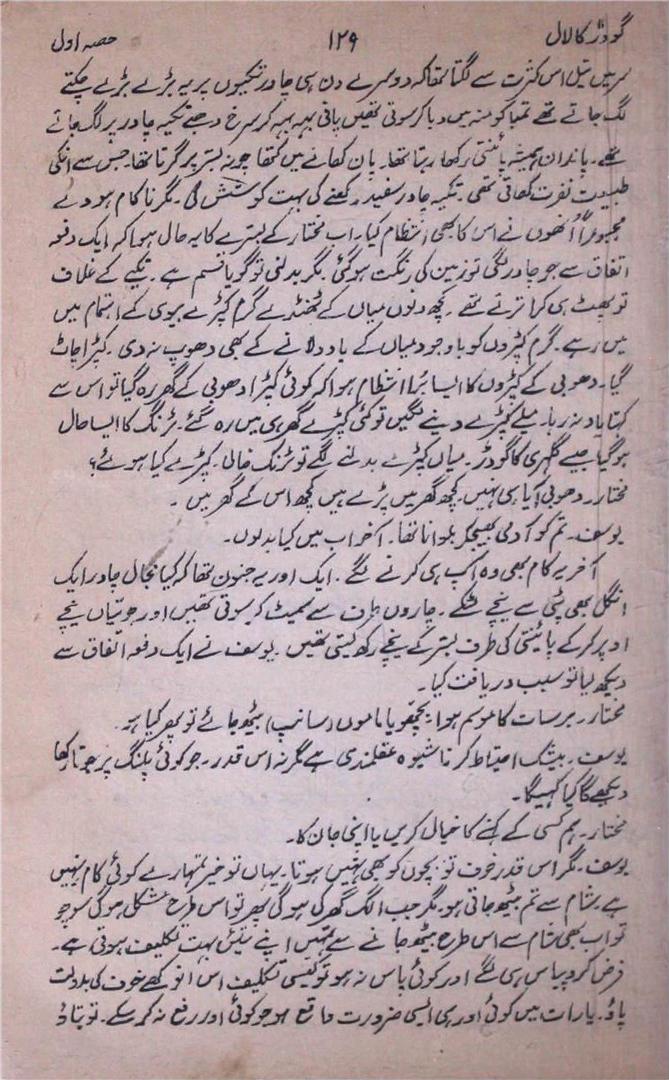 گودڑ کا لال ۱۲۹ حصہ اول
سر میں تیل اس کثرت سے لگتا تھا کہ دوسرے دن ہی چادر تکیوں پر یہ بڑے بڑے چکتے
لگ جاتے تھے تمباکو منہ میں دبا کر سوتی تھیں پانی بہہ بہہ کر سرخ دھبے تکیہ چادر پر لگ جاتے
تھے۔ پاندان ہمیشہ پائنتی رکھا رہتا تھا۔ پان کھانے میں کتھا چونہ بستر پر گرتا تھا جس سے انکی
طبیعت نفرت کھاتی تھی۔ تکیہ چادر سفید رکھنے کی بہت کوشش کی۔ مگر ناکام ہوئے
مجبوراً اُنھوں نے اس کا بھی انتظام کیا۔ اب مختار کے بسترے کا یہ حال ہوا کہ ایک دفعہ
اتفاق سے جو چادر لگی تو زمین کی رنگت ہوگئی۔ مگر بدلنی تو گویا قسم ہے۔ تکیے کے غلاف
تو پھٹ ہی کر اترتے تھے۔ کچھ دنوں میاں کے ٹھنڈے گرم کپڑے بیوی کے اہتمام میں
میں رہے۔ گرم کپڑوں کو باوجود میاں کے یاد دلانے کے کبھی دھوپ نہ دی۔ کپڑا چاٹ
گیا۔ دھوبی کے کپڑوں کا ایسا بُرا انتظام ہوا کہ کوئی کپڑا دھوبی کے گھر رہ گیا تو اس سے
کہنا یاد نہ رہا۔ میلے کپڑے دینے لگیں تو کئی کپڑے گھر ہی میں رہ گئے۔ ٹرنک کا ایسا حال
ہوگیا جیسے گلہری کا گودڑ۔ میاں کپڑے بدلنے لگے تو ٹرنک خالی۔ کپڑے کیا ہوئے؟
مختار۔ دھوبی آیا ہی نہیں۔ کچھ گھر میں پڑے ہیں کچھ اس کے گھر ہیں۔
یوسف۔ تم کو آدمی بھیجکر بلوانا تھا۔ آخر اب میں کیا بدلوں۔
آخر یہ کام بھی وہ آپ ہی کرنے لگے۔ ایک اور یہ جنون تھا کہ کیا مجال چادر ایک
انگل بھی پٹی سے نیچے لٹکے۔ چاروں طرف سے سمیٹ کر سوتی تھیں اور جوتیاں نیچے
اوپر کرکے پائنتی کی طرف بستر کے نیچے رکھ لیتی تھیں۔ یوسف نے ایک دفعہ اتفاق سے
دیکھ لیا تو سبب دریافت کیا۔
مختار۔ برسات کا موسم ہوا بچھو یا ماموں (سانپ) بیٹھ جائے تو پھر کیا ہو۔
یوسف۔ بیشک احتیاط کرنا شیوہ عقلمندی ہے مگر نہ اس قدر۔ جو کوئی پلنگ پر جوتا رکھا
دیکھے گا کیا کہیگا۔
مختار۔ ہم کسی کے کہنے کا خیال کریں یا اپنی جان کا۔
یوسف۔ مگر اس قدر خوف تو بچوں کو بھی نہیں ہوتا۔ یہاں تو خیر تمہارے کوئی کام نہیں
ہے شام سے تم بیٹھ جاتی ہو۔ مگر جب الگ گھر کی ہوگی پھر تو اس طرح مشکل ہوگی سوچو
تو اب بھی شام سے اس طرح بیٹھ جانے سے تمہیں اپنے تئیں بہت تکلیف ہوتی ہے۔
فرض کرو پیاس ہی لگے اور کوئی پاس نہ ہو تو کیسی تکلیف اس انوکھے خوف کی بدولت
پاؤ۔ یا رات میں کوئی اور ہی ایسی ضرورت واقع ہو جو کوئی اور رفع نہ کر سکے۔ تو بتاؤ